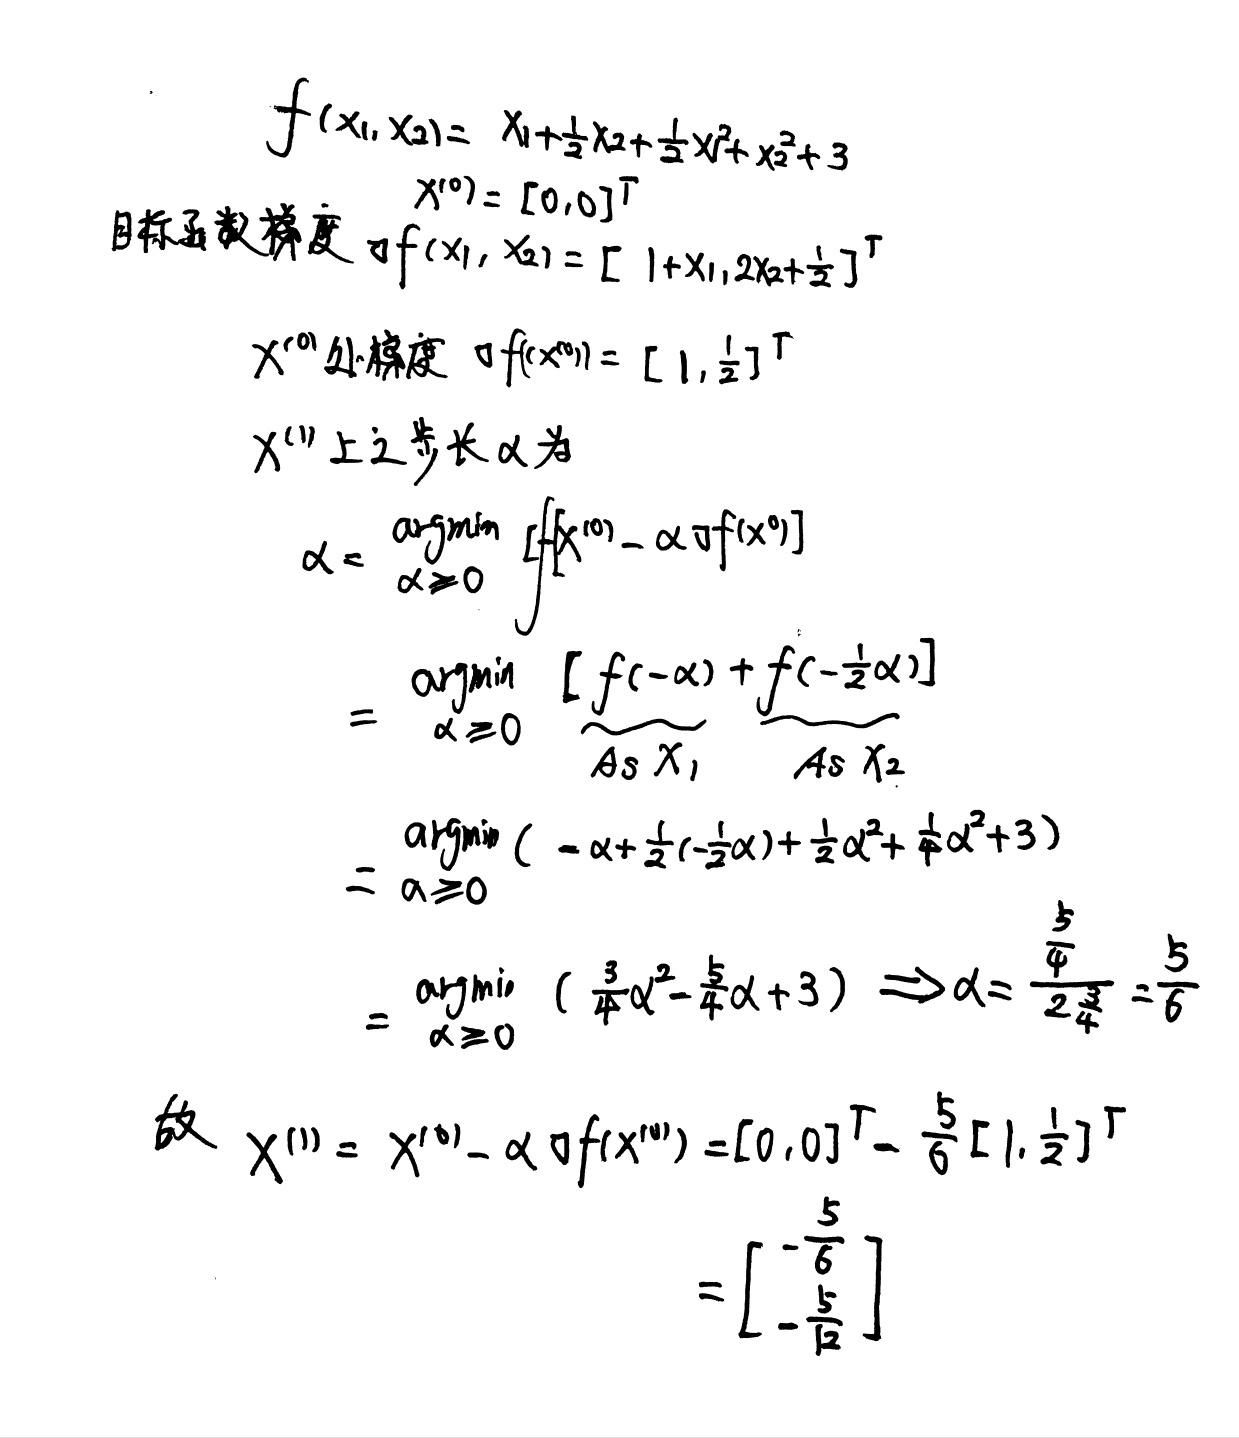 f(x₁, x₂) = x₁ + ½x₂ + ½x₁² + x₂² + 3
X⁽⁰⁾ = [0, 0]ᵀ
目标函数梯度 ∇f(x₁, x₂) = [ 1+x₁, 2x₂+½ ]ᵀ
X⁽⁰⁾处梯度 ∇f(x⁽⁰⁾) = [ 1, ½ ]ᵀ
X⁽¹⁾上之步长α为
α = argmin α≥0 [f[x⁽⁰⁾ - α∇f(x⁰)]
= argmin α≥0 [ f(-α) + f(-½α) ]
As X₁ As X₂
= argmin a≥0 ( -α + ½(-½α) + ½α² + ¼α² + 3 )
= argmin α≥0 ( ¾α² - 5/4 α + 3 ) ⇒ α = (5/4)/(2 3/4) = 5/6
故 X⁽¹⁾ = X⁽⁰⁾ - α∇f(X⁽⁰⁾) = [0, 0]ᵀ - 5/6 [1, ½]ᵀ
= [ -5/6
-5/12 ]